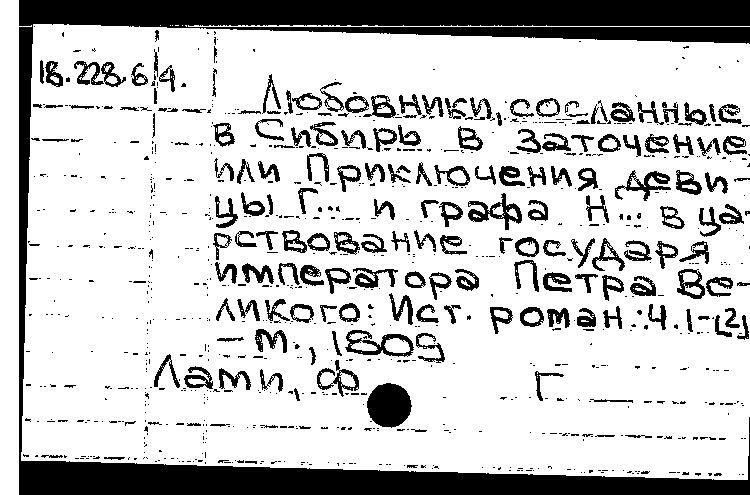 18.228.6.4.
Любовники, сосланные
в Сибирь в заточение
или Приключения деви-
цы Г... и графа Н... в ца-
рствование государя
императора Петра Ве-
ликого: Ист. роман.: Ч. 1-[2]
- М., 1809
Лами, Ф Г